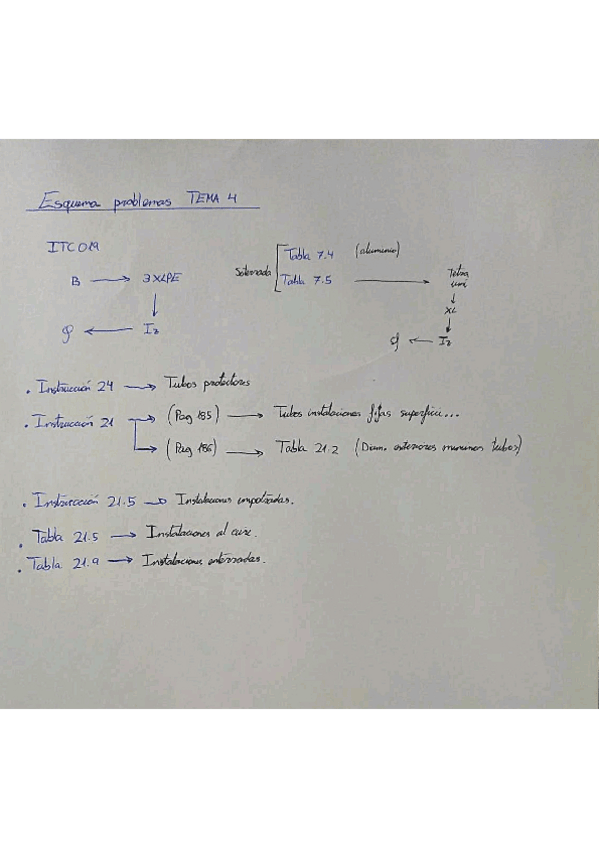 Esquema problemas TEMA 4
ITC 019
B → 3XLPE
↓
Ø ← Iz
Soterrada Tabla 7.4 (aluminio)
Tabla 7.5 → Tetra uni
↓
XL
↓
Ø ← Iz
. Instrucción 24 → Tubos protectores
. Instrucción 21 → (Pag 185) → Tubos instalaciones fijas superfici...
→ (Pag 186) → Tabla 21.2 (Diam. exteriores mínimos tubos)
. Instrucción 21.5 → Instalaciones empotradas.
. Tabla 21.5 → Instalaciones al aire.
. Tabla 21.9 → Instalaciones enterradas.